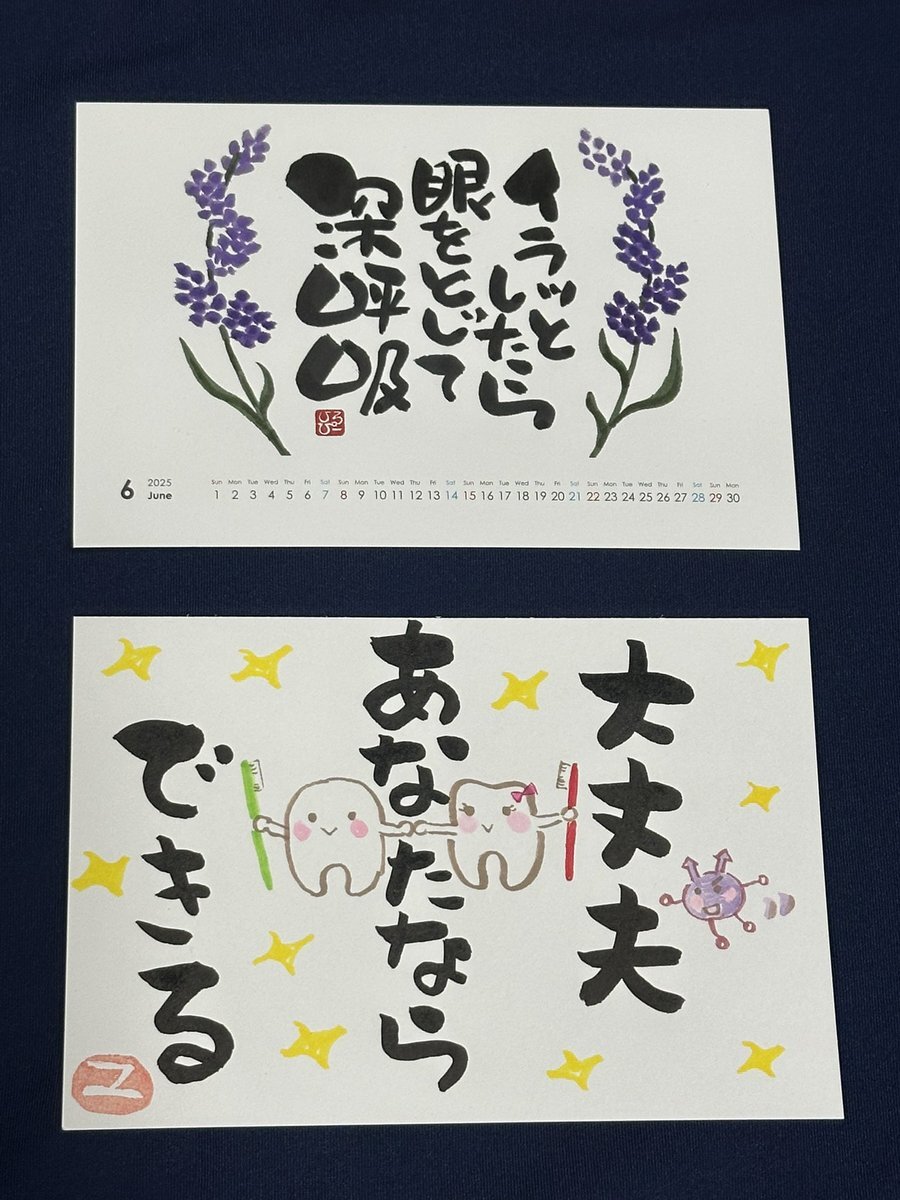 イラッと
したら
眼をとじて
深呼吸
ひろぴー
6
2025
June
Sun Mon Tue Wed Thu Fri Sat Sun Mon Tue Wed Thu Fri Sat Sun Mon Tue Wed Thu Fri Sat Sun Mon Tue Wed Thu Fri Sat Sun Mon
1 2 3 4 5 6 7 8 9 10 11 12 13 14 15 16 17 18 19 20 21 22 23 24 25 26 27 28 29 30
大丈夫
あなたなら
できる